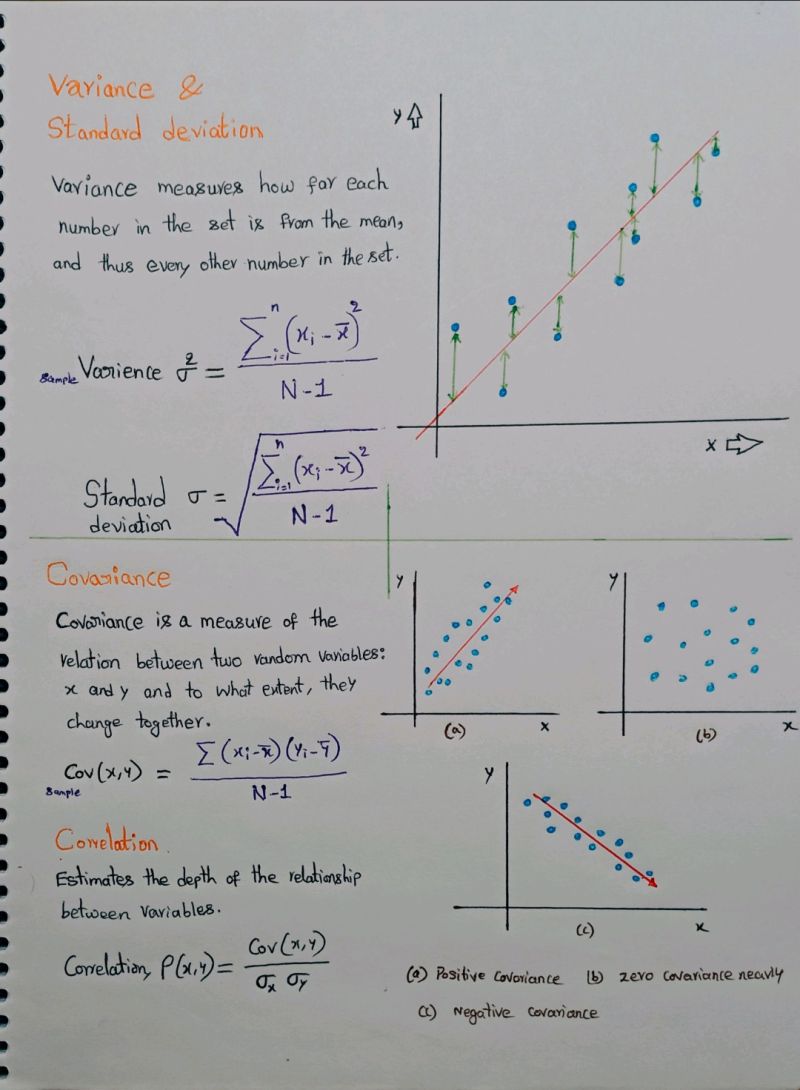 Variance &
Standard deviation
Variance measures how far each
number in the set is from the mean,
and thus every other number in the set.
Sample Varience σ² = ∑ⁿᵢ₌₁ (xᵢ - x̄)² / N-1
Standard deviation σ = √(∑ⁿᵢ₌₁ (xᵢ - x̄)² / N-1)
y
x
Covariance
Covariance is a measure of the
relation between two random variables:
x and y and to what extent, they
change together.
Cov(x,y) = ∑(xᵢ-x̄)(yᵢ-ȳ) / N-1
Sample
y
x
(a)
y
x
(b)
y
x
(c)
Correlation
Estimates the depth of the relationship
between variables.
Correlation, P(x,y) = Cov(x,y) / σx σy
(a) Positive Covariance (b) zero covariance nearly
(c) Negative covariance